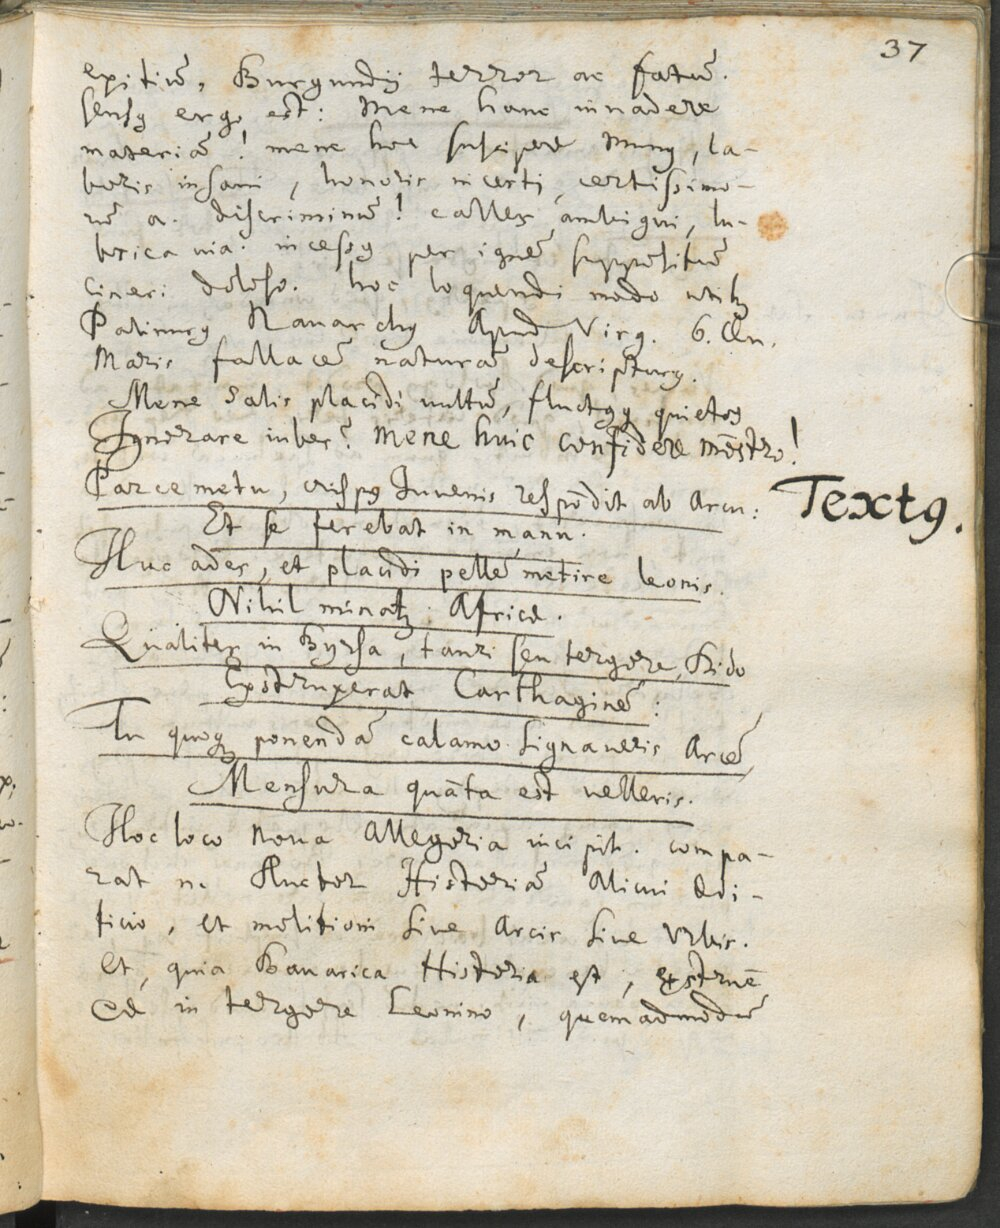 37
exitiũ, Burgundij terror ac fatũ.
sensꝯ ergo est: Mene hanc inuadere
materiã! mene hoc suscipere munꝯ, la-
boris insani, honoris incerti, certissimo-
rũ a. discriminũ! calles ambigui, lu-
brica uia: incessꝯ per ignẽ suppositũ
cineri doloso. hoc loquendi modo utitꝛ
Palinurꝯ Nauarchꝯ Apud Virg. 6. Æn.
Maris fallacẽ naturã descripturꝯ.
Mene salis placidi uultũ, fluctꝯqꝫ quietos
Ignorare iubes? mene huic confidere mõstro!
Parce metu, crispꝯ Iuuenis respõdit ab Arcu:
Textꝯ.
Et se ferebat in manu.
Huc ades, et placidi pellẽ metire leonis.
Nihil minatꝛ Africæ.
Qualiter in Byrsa, tauri seu tergore, Dido
Exstruxerat Carthaginẽ:
Tu quoqꝫ ponendã calamo signaueris Arcẽ,
Mensura quãta est uelleris.
Hoc loco noua Allegoria incipit. compa-
rat n. Auctor Historiã Alicui ædi-
ficio, et molitioni siue Arcis siue Vrbis.
Et, quia Bauarica Historia est, exstruẽ
ea in tergore Leonino, quemadmodũ